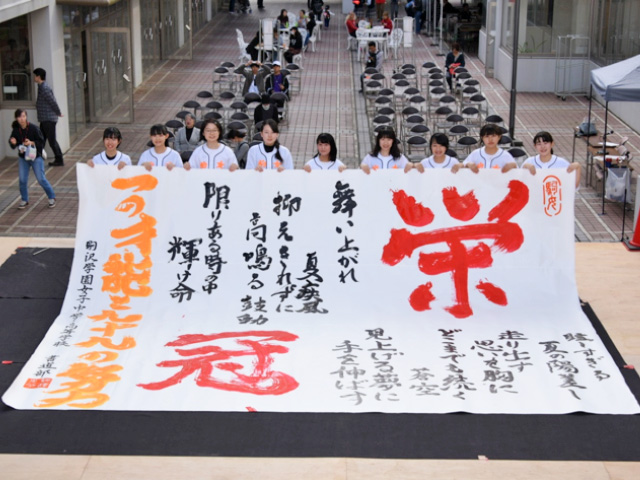 眩しすぎる
夏の陽差し
走り出す
思いを胸に
どこまでも続く
蒼空
見上げる夢に
手を伸ばす
栄
冠
舞い上がれ
夏疾風
抑えきれずに
高鳴る鼓動
限りある時の中
輝け命
一の才能と九十九の努力
駒沢学園女子中学高等学校
書道部